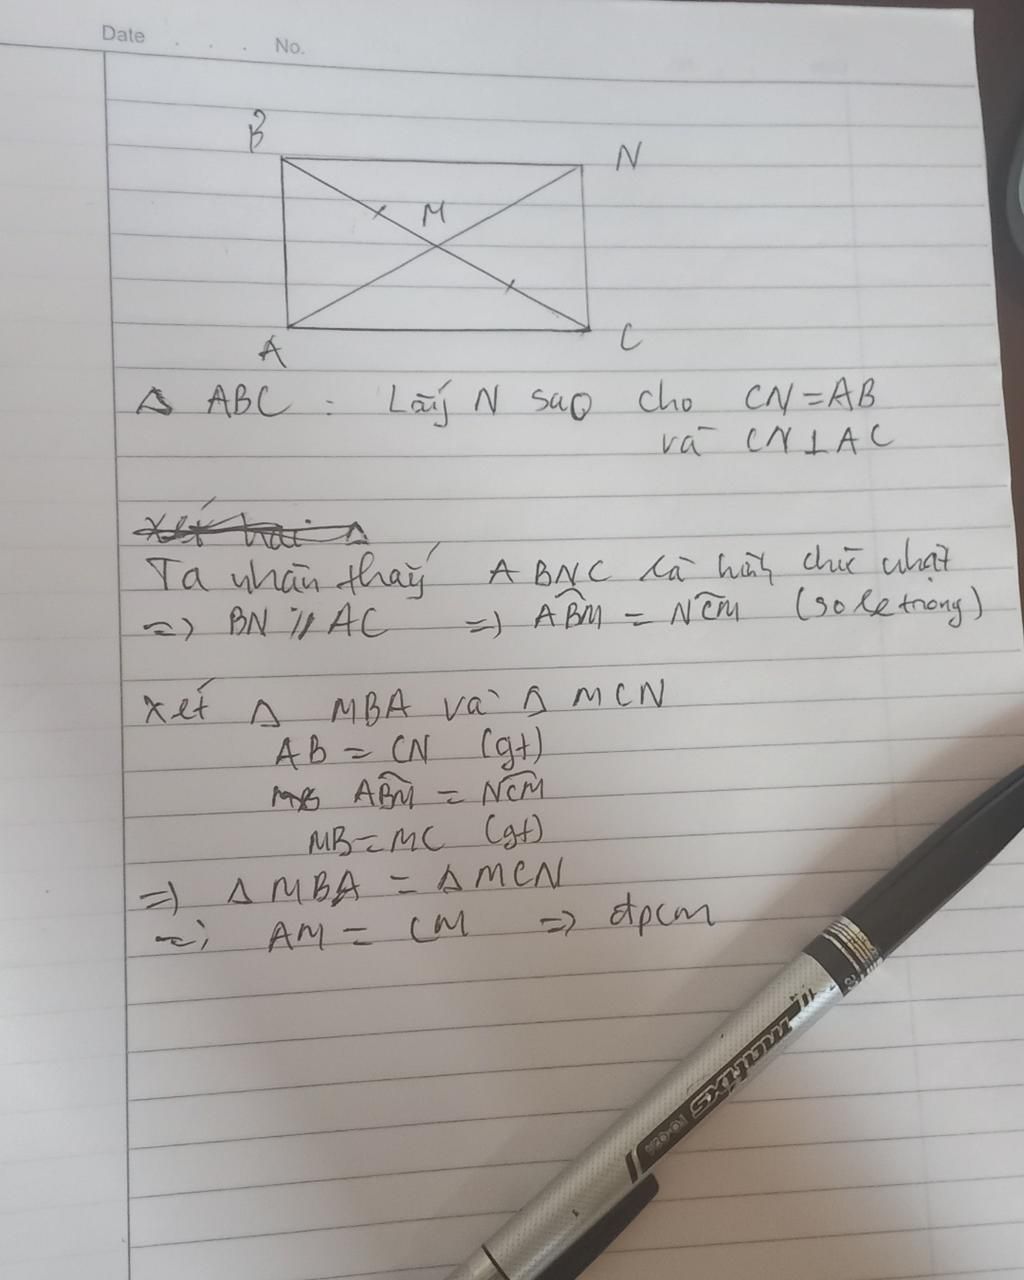 Date . . . No.
B
N
M
A
C
Δ ABC : Lấy N sao cho CN = AB
và CN ⊥ AC
Xét hai Δ
Ta nhận thấy ABNC là hình chữ nhật
=> BN // AC => ABM = NCM (so le trong)
Xét Δ MBA và Δ MCN
AB = CN (gt)
ABM = NCM
MB = MC (gt)
=> Δ MBA = Δ MCN
=> AM = CM => đpcm